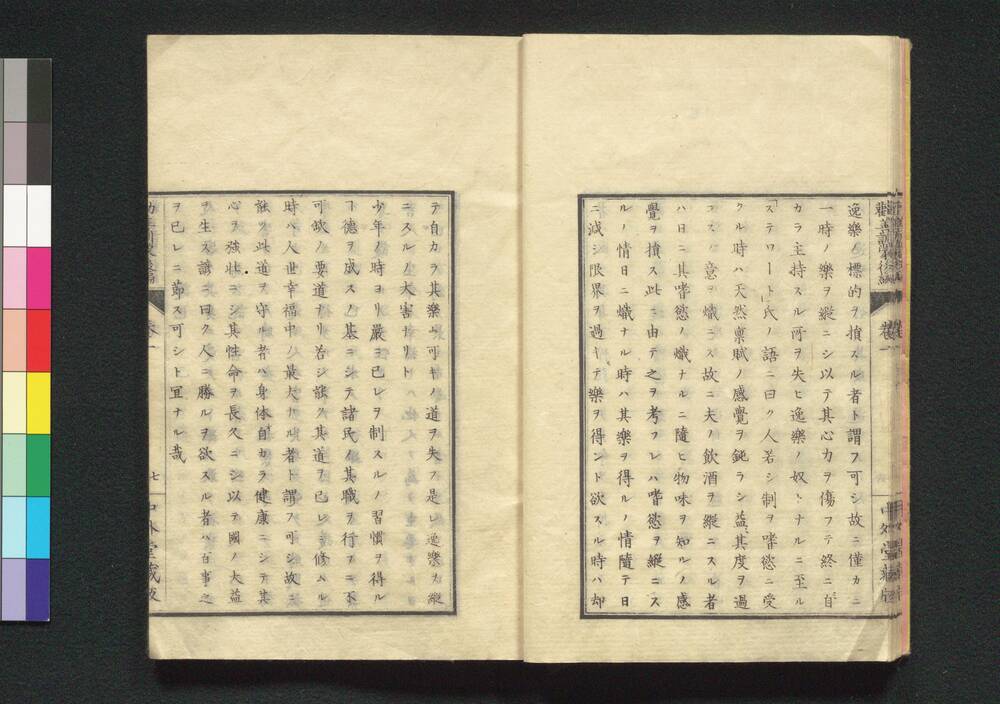 逸樂ノ標的ヲ損スル者ト謂フ可シ故ニ僅カニ
一時ノ樂ヲ縱ニシ以テ其心力ヲ傷フテ終ニ自
カラ主持スル所ヲ失ヒ逸樂ノ奴トナルニ至ル
「ステワート」氏ノ語ニ曰ク人若シ制ヲ嗜慾ニ受
クル時ハ天然稟賦ノ感覺ヲ鈍ラシ益其度ヲ過
コスノ意ヲ熾ニス故ニ夫ノ飲酒ヲ縱ニスル者
ハ日ニ其嗜慾ノ熾ナルニ隨ヒ物味ヲ知ルノ感
覺ヲ損ス此ニ由テ之ヲ考フレハ嗜慾ヲ縱ニス
ルノ情日ニ熾ナル時ハ其樂ヲ得ルノ情隨テ日
ニ減シ限界ヲ過キテ樂ヲ得ント欲スル時ハ却
テ自カラ其樂ム可キノ道ヲ失フ是レ逸樂ヲ縱
ニスルノ大害ナリト
少年ノ時ヨリ嚴ニ己レヲ制スルノ習慣ヲ得ル
ハ德ヲ成スノ基ニシテ諸民ノ其職ヲ行フニ不
可缺ノ要道ナリ若シ能ク其道ヲ己レニ修ムル
時ハ人世幸福中ノ最大ナル者ト謂フ可シ故ニ
能ク此道ヲ守ル者ハ身体自カラ健康ニシテ其
心ヲ強壮ニシ其性命ヲ長久ニシ以テ國ノ大益
ヲ生ス諺ニ曰ク人ニ勝ルヲ欲スル者ハ百事之
ヲ己レニ節ス可シト宜ナル哉
卷一
七